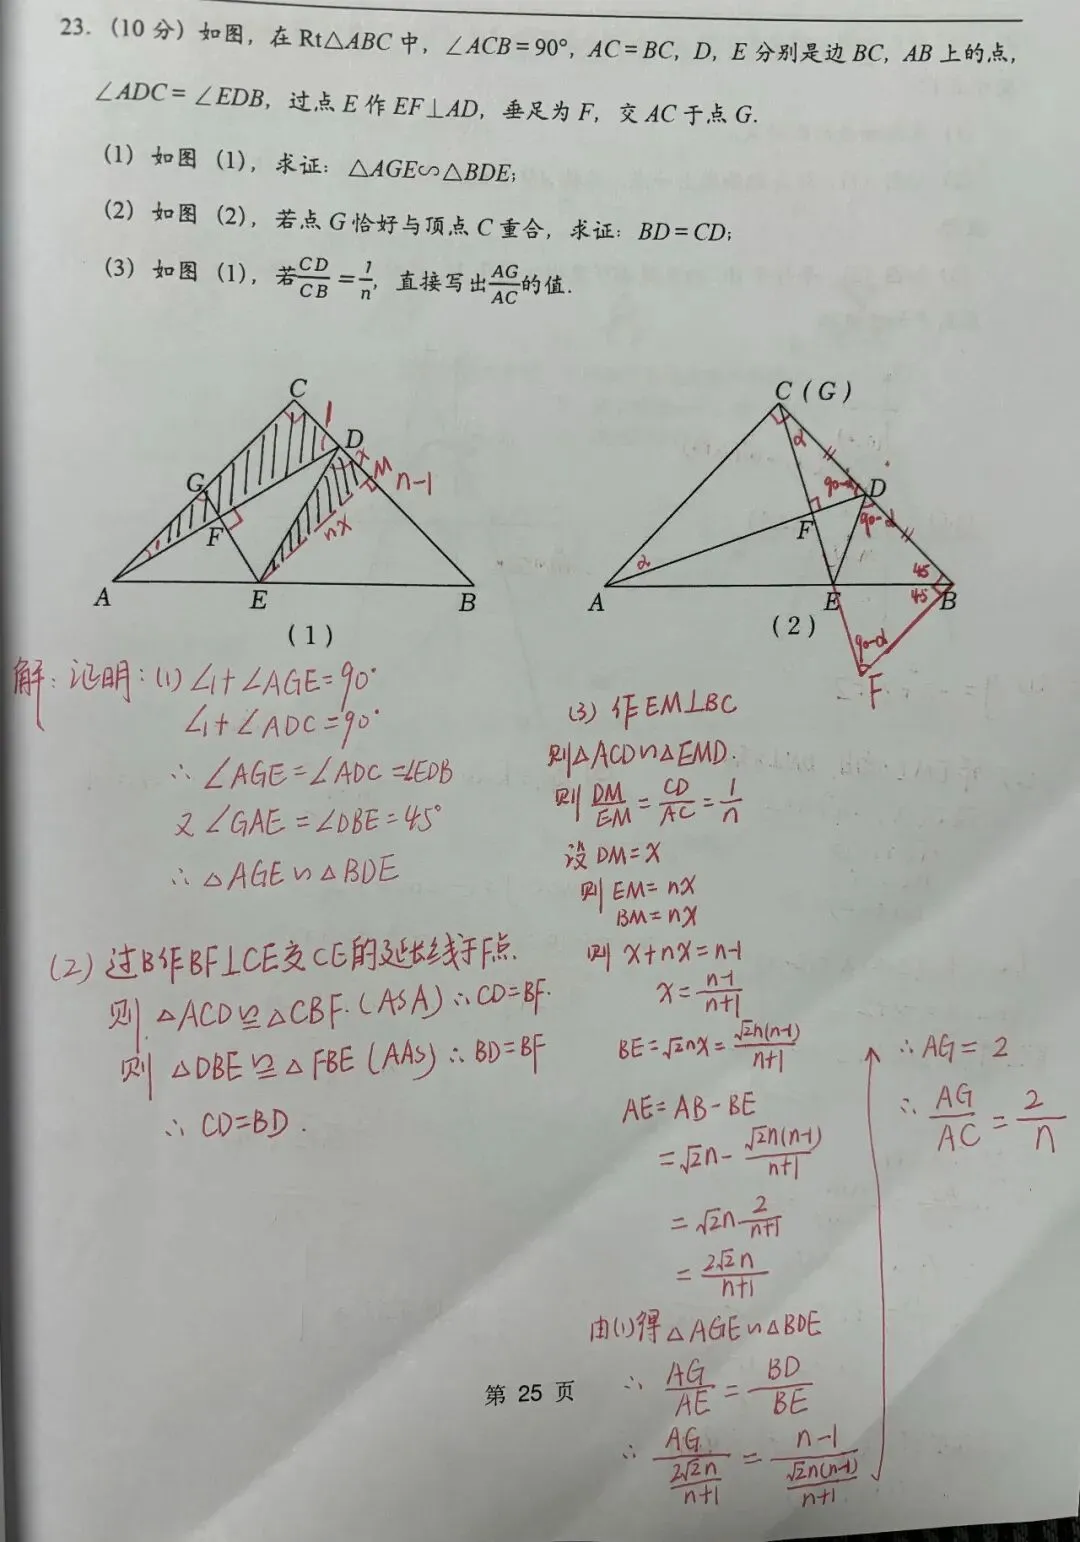 23. (10 分) 如图, 在 Rt△ABC 中, ∠ACB=90°, AC=BC, D, E 分别是边 BC, AB 上的点,
∠ADC=∠EDB, 过点 E 作 EF⊥AD, 垂足为 F, 交 AC 于点 G.
(1) 如图 (1), 求证: △AGE∽△BDE;
(2) 如图 (2), 若点 G 恰好与顶点 C 重合, 求证: BD=CD;
(3) 如图 (1), 若CD/CB=1/n, 直接写出AG/AC的值.
C 1
D x
G M n-1
F nx
A E B
(1)
C (G)
α
90-α D
F 90-α
α 45
A E 45 B
(2) 90-α
F
解: 证明: (1) ∠1+∠AGE=90°
∠1+∠ADC=90°
∴ ∠AGE=∠ADC=∠EDB
又 ∠GAE=∠DBE=45°
∴ △AGE∽△BDE
(2) 过B作BF⊥CE交CE的延长线于F点.
则 △ACD≌△CBF.(ASA) ∴CD=BF.
则 △DBE≌△FBE (AAS) ∴BD=BF
∴ CD=BD.
(3) 作EM⊥BC
则△ACD∽△EMD.
则 DM/EM=CD/AC=1/n
设 DM=x
则 EM=nx
BM=nx
则 x+nx=n-1
x=(n-1)/(n+1)
BE=√2nx=√2n(n-1)/(n+1)
AE=AB-BE
=√2n-√2n(n-1)/(n+1)
=√2n·2/(n+1)
=2√2n/(n+1)
由(1)得 △AGE∽△BDE
∴ AG/AE=BD/BE
∴ AG/(2√2n/(n+1))=(n-1)/(√2n(n-1)/(n+1))
∴ AG=2
∴ AG/AC=2/n
第 25 页